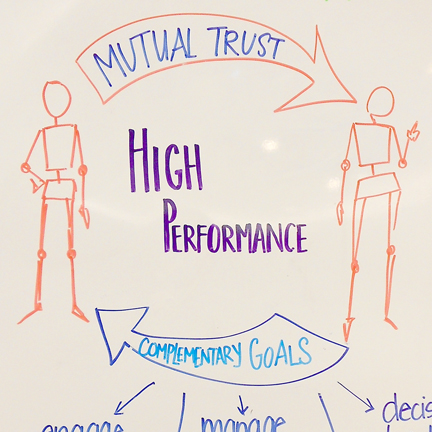 MUTUAL TRUST
HIGH
PERFORMANCE
COMPLEMENTARY GOALS
engage
manage